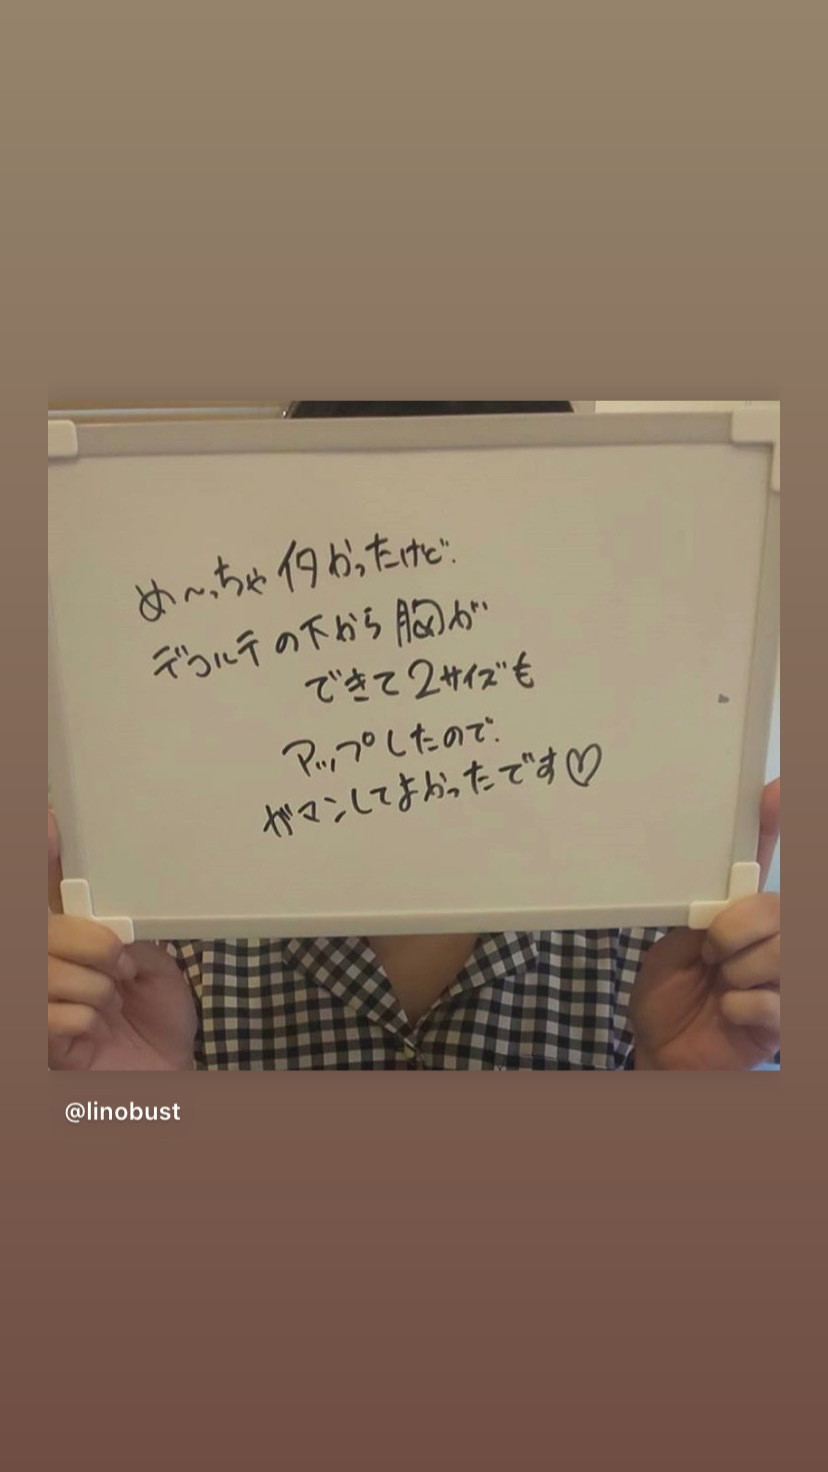 め〜っちゃ何かったけど、
デコルテの下から胸が
できて2サイズも
アップしたので、
ガマンしてよかったです♡
@linobust